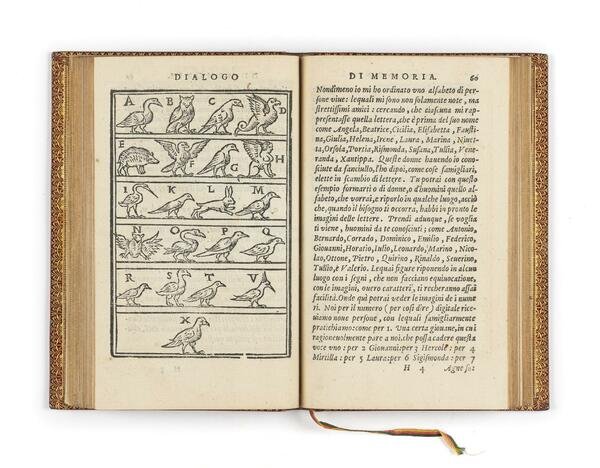 DIALOGO
A B C D
E F G H
I K L M
N O P Q
R S T V
X
DI MEMORIA. 60
Nondimeno io mi ho ordinato vno alfabeto di per-
sone viue: lequali mi sono non solamente note, ma
strettissimi amici: cercando, che ciascuna mi rap-
presentasse quella lettera, che è prima del suo nome
come Angela, Beatrice, Cicilia, Elisabetta, Fausti-
na, Giulia, Helena, Irene, Laura, Marina, Ninci-
ta, Orsola, Portia, Rismonda, Susana, Tullia, Vene-
randa, Xantippa. Queste donne hauendo io cono-
sciute da fanciullo, l'ho dipoi, come cose famigliari,
elette in scambio di lettere. Tu potrai con questo
esempio formarti o di donne, o d'huomini quello al-
fabeto, che vorrai, e riporlo in qualche luogo, acciò
che, quando il bisogno ti occorra, habbi in pronto le
imagini delle lettere. Prendi adunque, se voglia
ti viene, huomini da te conosciuti; come Antonio,
Bernardo, Corrado, Dominico, Emilio, Federico,
Giouanni, Horatio, Iulio, Leonardo, Marino, Nico-
lao, Ottone, Pietro, Quirino, Rinaldo, Seuerino,
Tullio, e Valerio. Lequai figure riponendo in alcun
luogo con i segni, che non facciano equiuocatione,
con le imagini, ouero caratteri, ti recheranno assai
facilità. Onde quà potrai veder le imagini de i nume
ri. Noi per il numero (per cosi dire) digitale rice-
uiamo noue persone, con lequali famigliarmente
pratichiamo: come per 1. Vna certa giouane, in cui
ragioneuolmente pare a noi, che possa cadere questa
voce vno: per 2 Giouanni: per 3 Hercole: per 4
Mirtilla: per 5 Laura: per 6 Sigismonda: per 7
H 4 Agnesa: